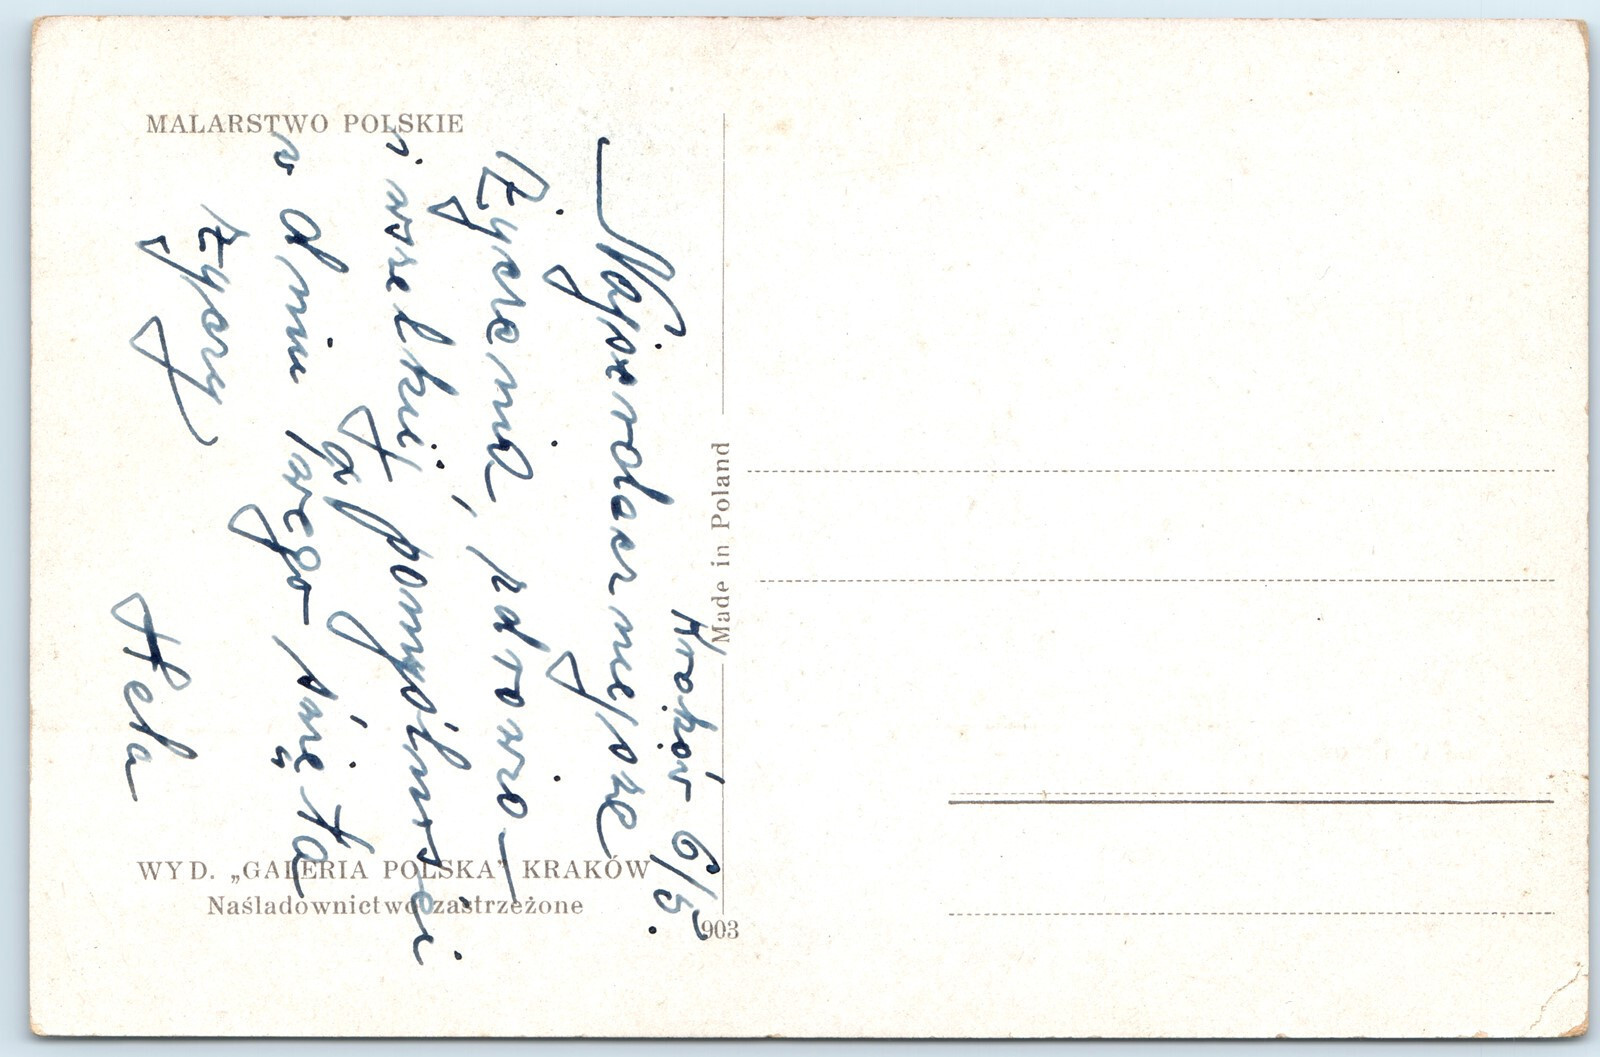 MALARSTWO POLSKIE
Kraków 6/5.
Najserdeczniejsze
życzenia, zdrowia
i wszelkiej pomyślności
w dniu Twego święta
życzy
Hela
WYD. „GALERIA POLSKA” KRAKÓW
Naśladownictwo zastrzeżone
Made in Poland
903